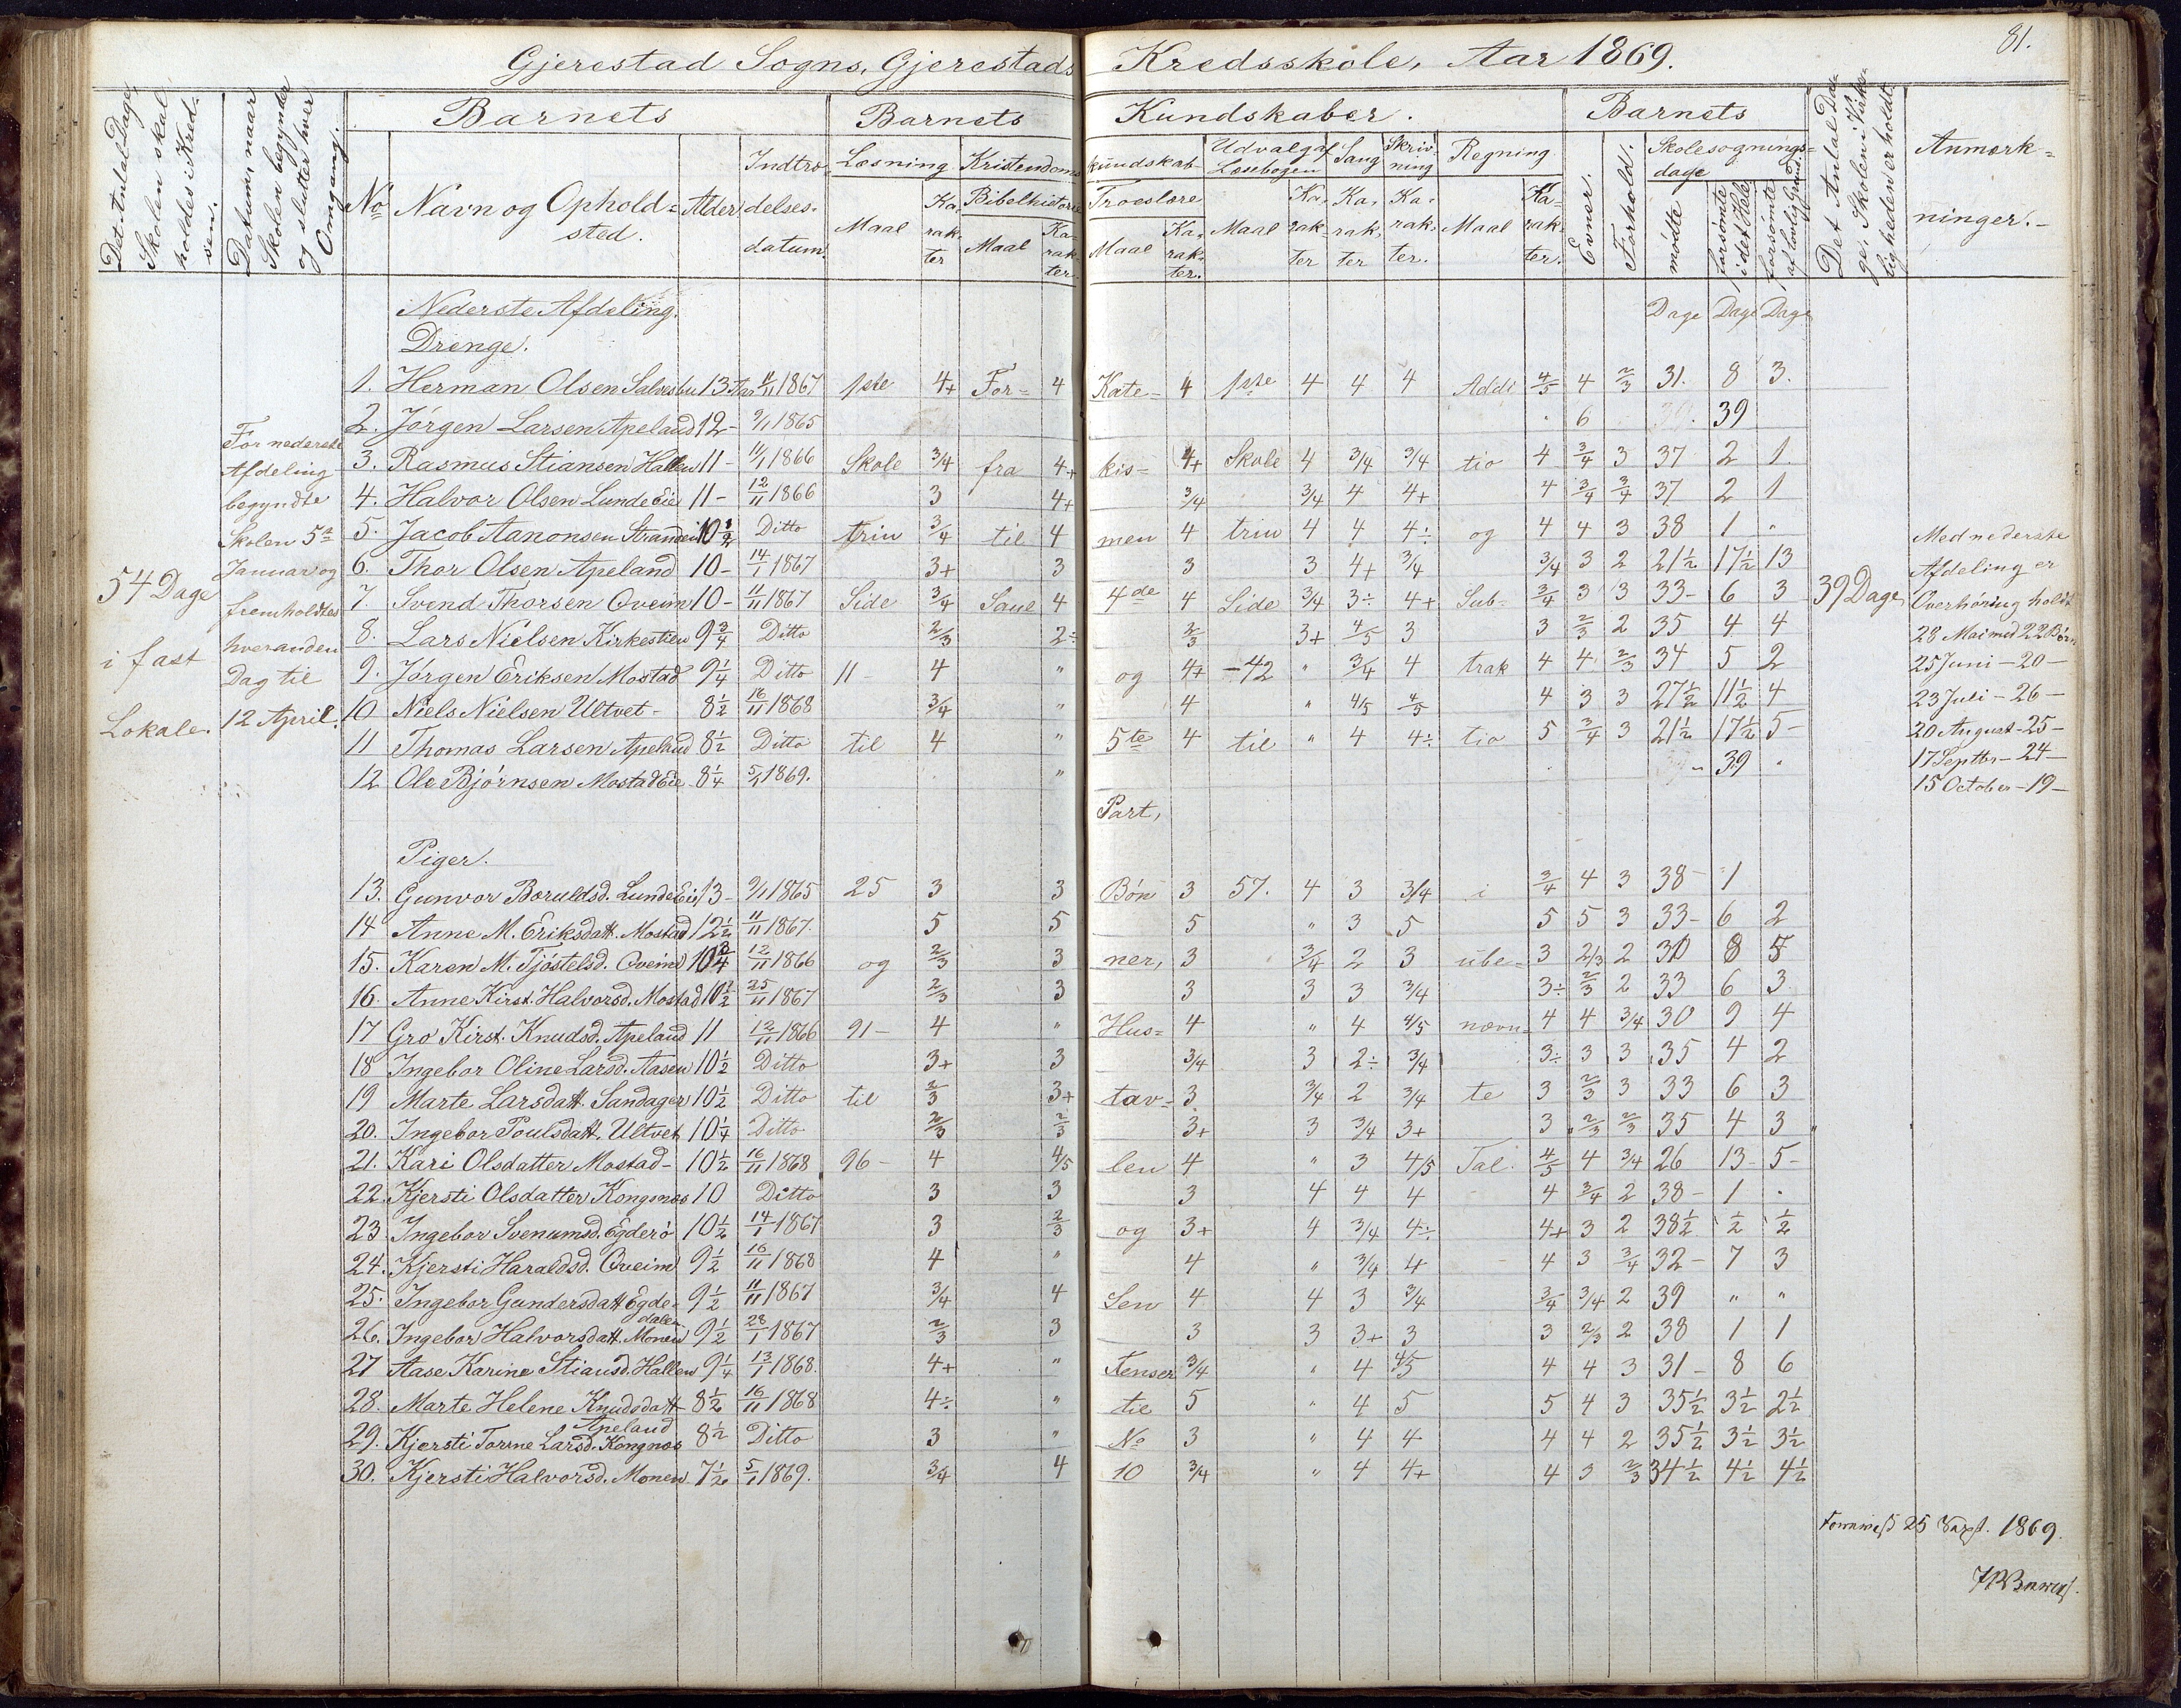 81.
Gjerestad Sogns, Gjerestads Kredsskole, Aar 1869.
Det Antal Dage Skolen skal holdes i Kredsen.
Datum, naar Skolen begynder og slutter hver Omgang.
Barnets
Barnets Kundskaber.
Barnets
Det Antal Dage, Skolen i Virkeligheden er holdt
Anmærkninger.-
No
Navn og Opholdsted.
Alder
Indtrædelsesdatum.
Læsning
Kristendomskundskab
Udvalg af Læsebogen
Sang
Skrivning
Regning
Evner.
Forhold.
Skolesøgningsdage
Maal
Karakter
Bibelhistorie
Maal
Karakter.
Troeslære
Maal
Karakter.
Maal
Karakter
Karakter
Karakter.
Maal
Karakter.
mødte
forsømte i det Hele
forsømte af lovlig Grund.
Dage Dage Dage
Nederste Afdeling.
Drenge.
1. Herman Olsen Salvesbu 13 Aar 11/11 1867 1ste 4+ For- 4 Kate- 4 1ste 4 4 4 Addi 4/5 4 2/3 31. 8 3.
2. Jørgen Larsen Apeland 12- 9/1 1865 6 39
3. Rasmus Stiansen Hallen 11- 11/1 1866 Skole 3/4 fra 4+ kis- 4+ Skole 4 3/4 3/4 tio 4 3/4 3 37 2 1.
4. Halvor Olsen Lunde Eie 11- 12/11 1866 3 4+ 3/4 3/4 4 4+ 4 3/4 3/4 37 2 1
5. Jacob Aanonsen Strandei 10 1/2 Ditto trin 3/4 til 4 men 4 trin 4 4 4÷ og 4 4 3 38 1 "
6. Thor Olsen Apeland 10- 14/1 1867 3+ 3 3 3 4+ 3/4 3/4 3 2 21 1/2 17 1/2 13
7. Svend Thorsen Qveim 10- 11/11 1867 Side 3/4 Saul 4 4de 4 Side 3/4 3÷ 4+ Sub- 3/4 3 3 33- 6 3
8. Lars Nielsen Kirkestien 9 3/4 Ditto 2/3 2÷ 2/3 3+ 4/5 3 3 2/3 2 35 4 4
9. Jørgen Eriksen Mostad 9 1/4 Ditto 11- 4 " og 4+ -42 " 3/4 4 trak 4 4 2/3 34 5 2
10 Niels Nielsen Ultvet- 8 1/2 16/11 1868 3/4 " 4 " 4/5 4/5 4 3 3 27 1/2 11 1/2 4
11 Thomas Larsen Apeland 8 1/2 Ditto til 4 " 5te 4 til " 4 4÷ tio 5 3/4 3 21 1/2 17 1/2 5-
12 Ole Bjørnsen Mostad Eie 8 1/4 5/1 1869. " 39 "
Part,
Piger.
13. Gunvor Boruldsd. Lunde Eie 13- 9/1 1865 25 3 3 Bøn 3 57. 4 3 3/4 i 3/4 4 3 38- 1
14 Anne M. Eriksdatt. Mostad 12 1/2 11/11 1867. 5 5 5 " 3 5 5 5 3 33- 6 2
15. Karen M. Tjøstelsd. Qveim 10 3/4 12/11 1866 og 2/3 3 ner, 3 3/4 2 3 ube- 3 2/3 2 30 8 5
16. Anne Kirst. Halvorsd. Mostad 10 1/2 25/11 1867 2/3 3 3 3 3 3/4 3÷ 2/3 2 33 6 3
17 Gro Kirst. Knudsd. Apeland 11 12/11 1866 91- 4 " Hus- 4 " 4 4/5 nævn- 4 4 3/4 30 9 4
18 Ingebor Oline Larsd. Aasen 10 1/2 Ditto 3+ 3 3/4 3 2÷ 3/4 3÷ 3 3 35 4 2
19 Marte Larsdatt. Sandager 10 1/2 Ditto til 2/3 3+ tav- 3 3/4 2 3/4 te 3 2/3 3 33 6 3
20. Ingebor Poulsdatt. Ultvet 10 1/4 Ditto 2/3 2/3 3+ 3 3/4 3+ 3 2/3 2/3 35 4 3
21. Kari Olsdatter Mostad- 10 1/2 16/11 1868 96- 4 4/5 len 4 " 3 4/5 Tal. 4/5 4 3/4 26 13- 5-
22. Kjersti Olsdatter Kongsnæs 10 Ditto 3 3 3 4 4 4 4 3/4 2 38- 1 "
23. Ingebor Svenumsd. Egderø 10 1/2 14/1 1867 3 2/3 og 3+ 4 3/4 4÷ 4+ 3 2 38 1/2 1/2 1/2
24. Kjersti Haraldsd. Qveim 9 1/2 16/11 1868 4 " 4 " 3/4 4 4 3 3/4 32- 7 3
25. Ingebor Gundersdatt Egdedalen 9 1/2 11/11 1867 3/4 4 Sen 4 4 3 3/4 3/4 3/4 2 39 " "
26. Ingebor Halvorsdatt. Monen 9 1/2 28/1 1867 2/3 3 3 3 3+ 3 3 2/3 2 38 1 1
27 Aase Karine Stiansd. Hallen 9 1/4 13/1 1868. 4+ " tenser 3/4 " 4 4/5 4 4 3 31- 8 6
28. Marte Helene Knudsdatt Apeland 8 1/2 16/11 1868 4÷ " til 5 " 4 5 5 4 3 35 1/2 3 1/2 2 1/2
29. Kjersti Tomine Larsd. Kongnæs 8 1/2 Ditto 3 " No 3 " 4 4 4 4 2 35 1/2 3 1/2 3 1/2
30. Kjersti Halvorsd. Monen 7 1/2 5/1 1869. 3/4 4 10 3/4 " 4 4+ 4 3 2/3 34 1/2 4 1/2 4 1/2
54 Dage
i fast
Lokale.
For nederste
Afdeling
begyndte
Skolen 5te
Januar og
fremholdtes
hveranden
Dag til
12 April.
39 Dage
Med nederste
Afdeling er
Overhøring holdt
28 Mai med 22 Børn
25 Juni - 20 -
23 Juli - 26 -
20 August - 25 -
17 Septbr - 24 -
15 October - 19 -
25 Sept. 1869.